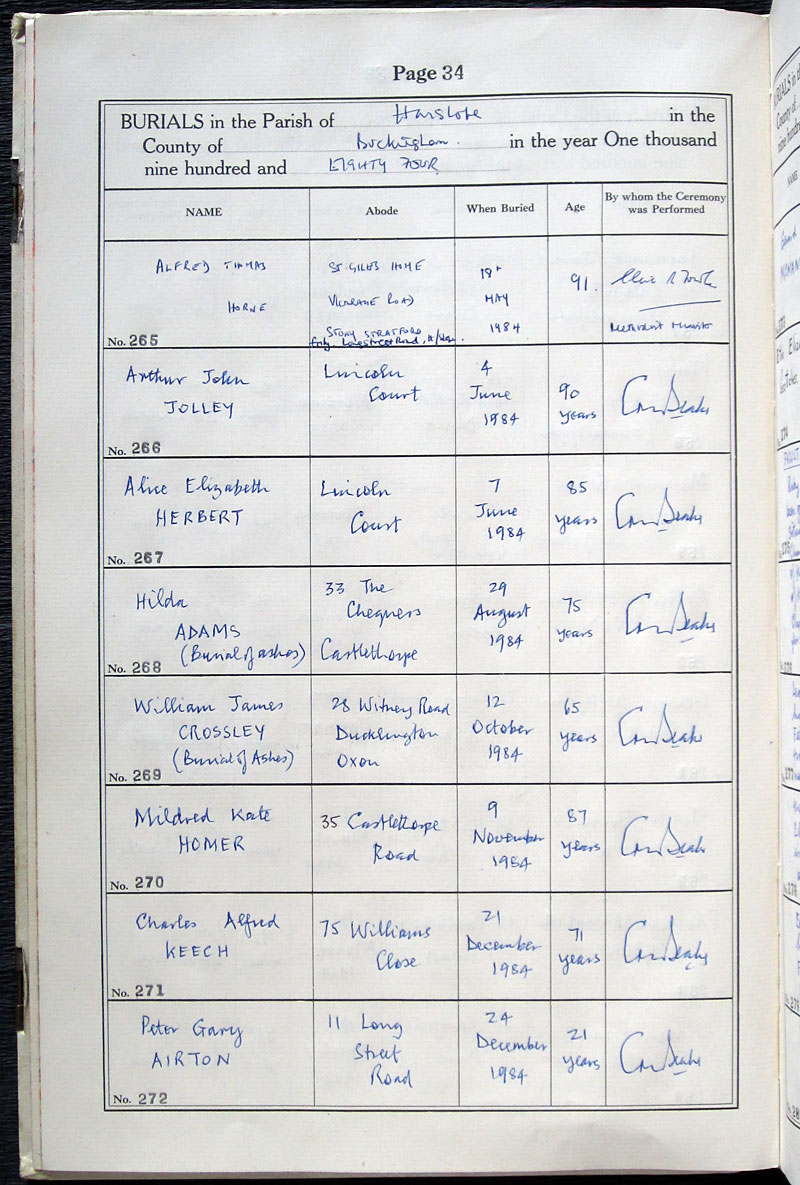 Page 34
BURIALS in the Parish of Hanslope in the
County of Buckingham. in the year One thousand
nine hundred and EIGHTY FOUR
NAME Abode When Buried Age By whom the Ceremony was Performed
ALFRED THOMAS
HORNE
No. 265
ST. GILES HOME
VICARAGE ROAD
STONY STRATFORD
Long Street Road,
18th
MAY
1984
91.
METHODIST MINISTER
Arthur John
JOLLEY
No. 266
Lincoln
Court
4
June
1984
90
years
Alice Elizabeth
HERBERT
No. 267
Lincoln
Court
7
June
1984
85
years
Hilda
ADAMS
(Burial of ashes)
No. 268
33 The
Chequers
Castlethorpe
29
August
1984
75
years
William James
CROSSLEY
(Burial of Ashes)
No. 269
28 Witney Road
Ducklington
Oxon
12
October
1984
65
years
Mildred Kate
HOMER
No. 270
35 Castlethorpe
Road
9
November
1984
87
years
Charles Alfred
KEECH
No. 271
75 Williams
Close
21
December
1984
71
years
Peter Gary
AIRTON
No. 272
11 Long
Street
Road
24
December
1984
21
years